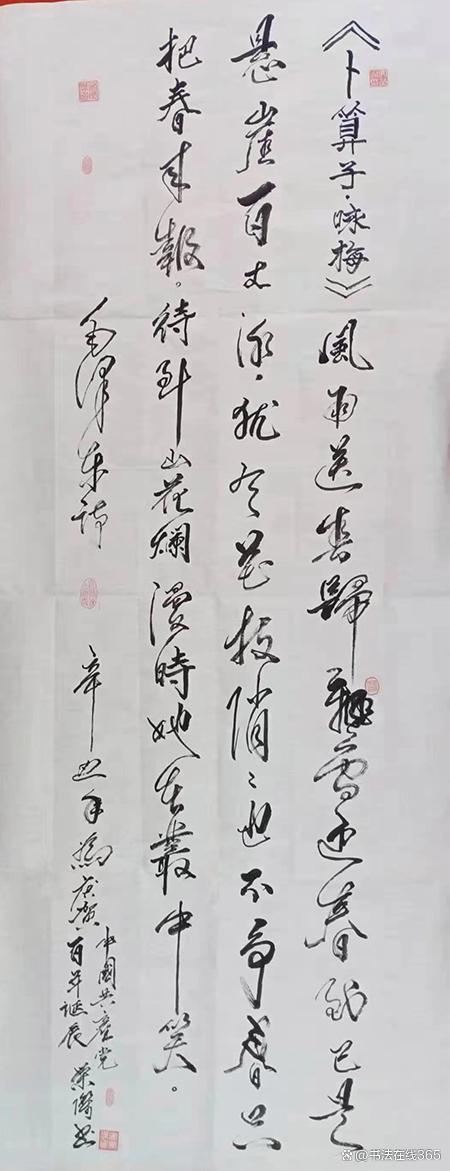 《卜算子·咏梅》風雨送春歸飛雪迎春到已是
悬崖百丈冰·犹有花枝俏〻也不争春只
把春来報。待到山花爛漫時她在叢中笑。
毛泽东詩 辛丑年為庆賀
中國共產党
百年诞辰 书
@书法在线365